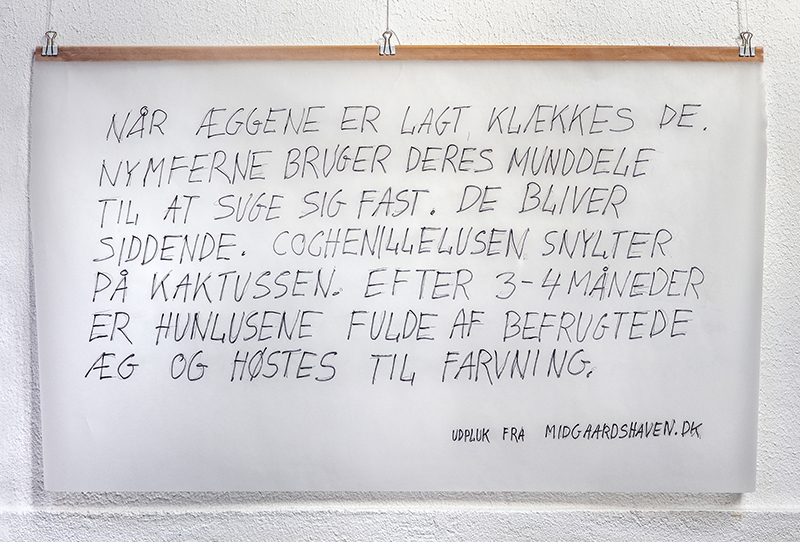 NÅR ÆGGENE ER LAGT KLÆKKES DE.
NYMFERNE BRUGER DERES MUNDDELE
TIL AT SUGE SIG FAST. DE BLIVER
SIDDENDE. COCHENILLELUSEN SNYLTER
PÅ KAKTUSSEN. EFTER 3-4 MÅNEDER
ER HUNLUSENE FULDE AF BEFRUGTEDE
ÆG OG HØSTES TIL FARVNING.
UDPLUK FRA MIDGAARDSHAVEN.DK